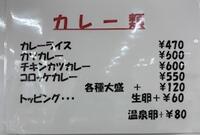 カレー類
カレーライス ¥470
カツカレー ¥600
チキンカツカレー ¥600
コロッケカレー ¥550
各種大盛 + ¥120
トッピング・・・ 生卵+¥60
温泉卵+¥80